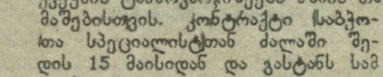 მაშებისთვის. კონტრაქტი საბჭო-
თა სპეციალისტთან ძალაში შე-
დის 15 მაისიდან და გასტანს სამ